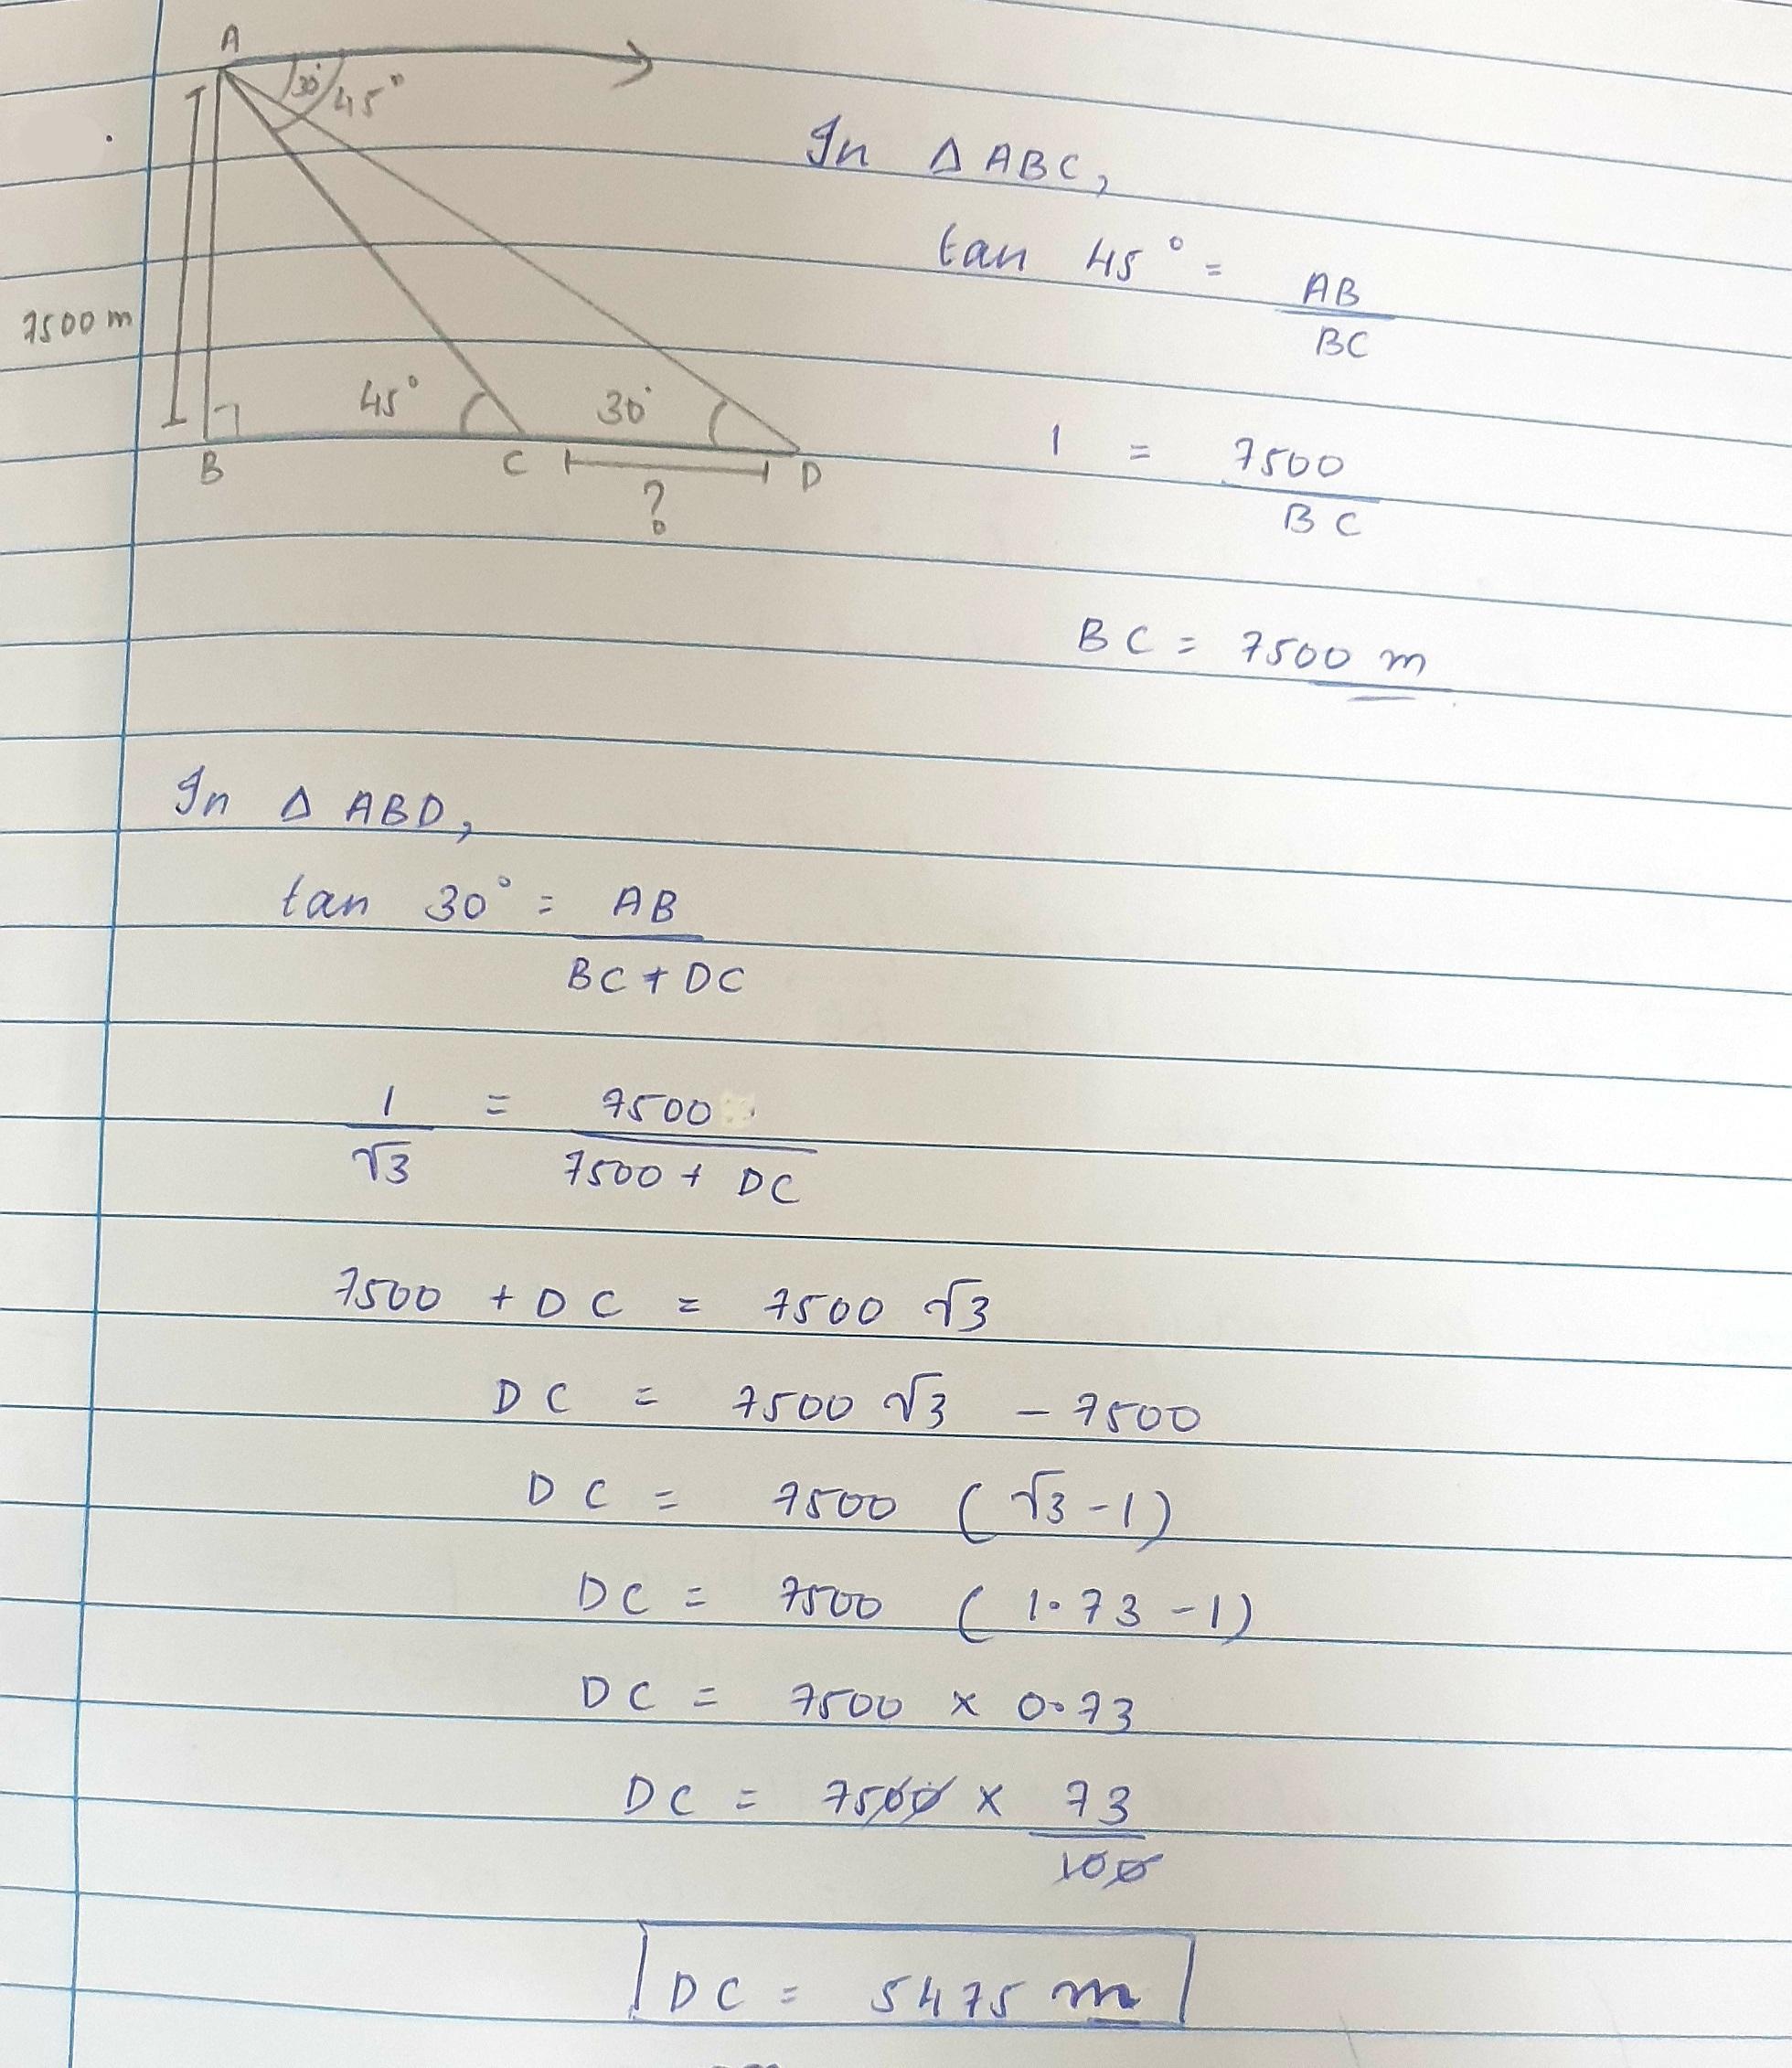 A
30° 45°
7500 m
45° 30°
B C D
?
In Δ ABC,
tan 45° = AB
BC
1 = 7500
BC
BC = 7500 m
In Δ ABD,
tan 30° = AB
BC + DC
1 = 7500
√3 7500 + DC
7500 + DC = 7500 √3
DC = 7500 √3 - 7500
DC = 7500 (√3 - 1)
DC = 7500 (1.73 - 1)
DC = 7500 x 0.73
DC = 7500 x 73
100
DC = 5475 m